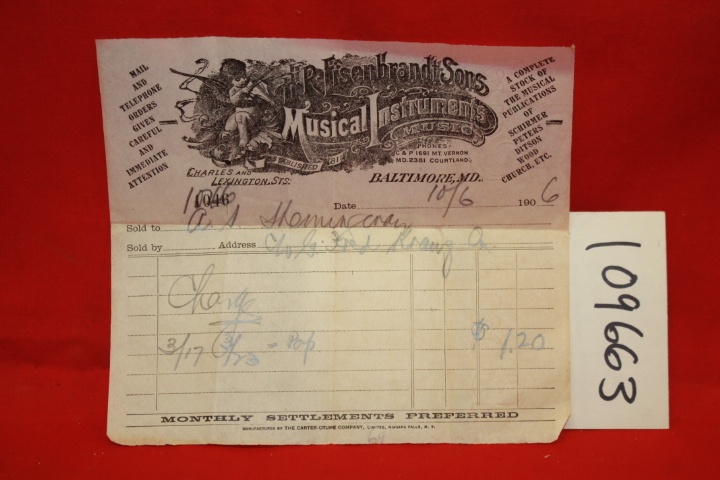 MAIL
AND
TELEPHONE
ORDERS
GIVEN
CAREFUL
AND
IMMEDIATE
ATTENTION
H. R. Eisenbrandt Sons
Musical Instruments
MUSIC
ESTABLISHED 1811
PHONES
C & P 1691 MT. VERNON
MD. 2381 COURTLAND
A COMPLETE
STOCK OF
THE MUSICAL
PUBLICATIONS
OF
SCHIRMER
PETERS
DITSON
WOOD
CHURCH, ETC.
CHARLES AND
LEXINGTON, STS.
BALTIMORE, MD.
1046
Date 10/6 1906
Sold to
Sold by Address
Charge
2/17 = Pop $ 1.20
MONTHLY SETTLEMENTS PREFERRED
MANUFACTURED BY THE CARTER-CRUME COMPANY, LIMITED, NIAGARA FALLS, N. Y.
109663